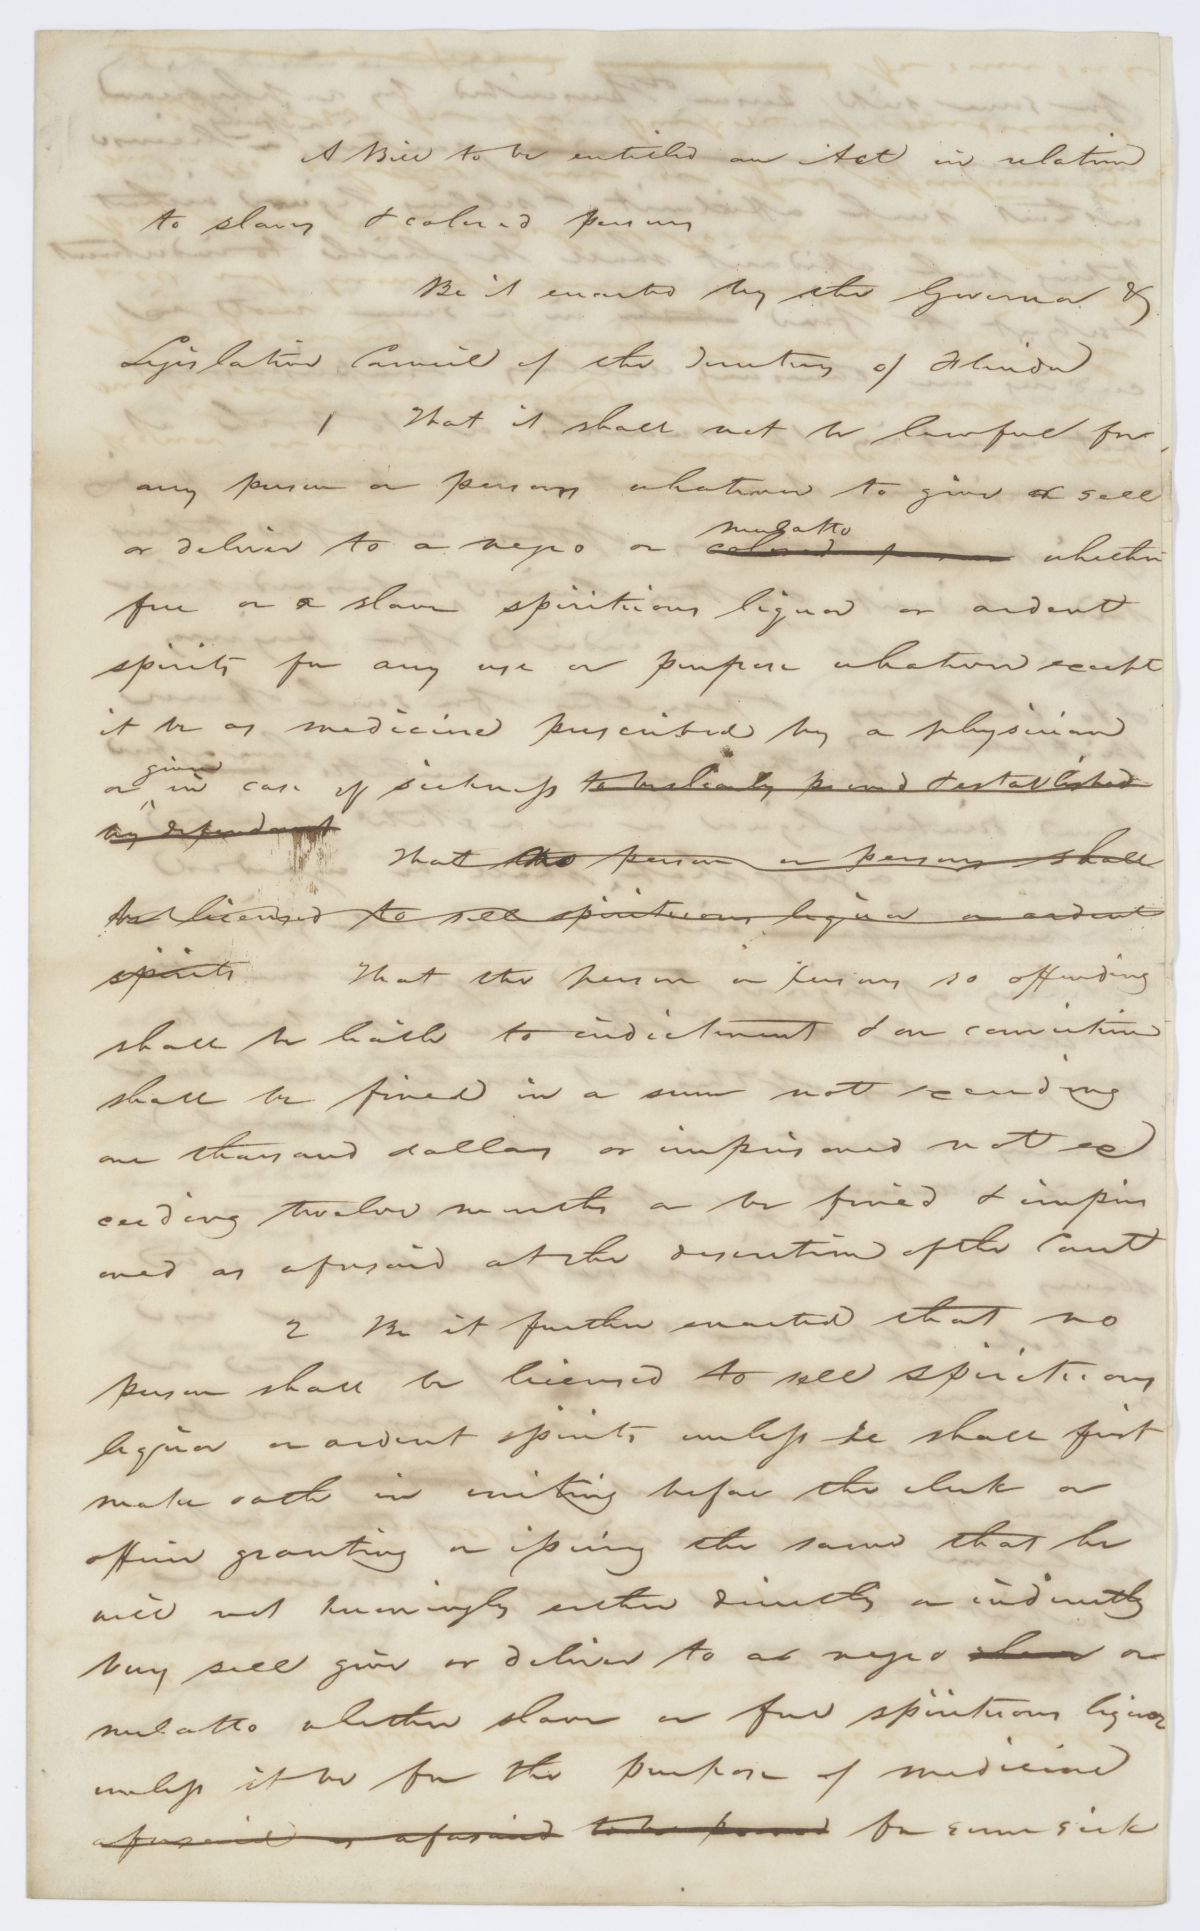 A Bill to be entitled an Act in relation
to slaves & colored persons
Be it enacted by the Governor &
Legislative Council of the Territory of Florida
1 That it shall not be lawful for
any person or persons whatever to give or sell
mulatto
or deliver to a negro or colored person whether
free or a slave spirituous liquor or ardent
spirits for any use or purpose whatever except
it be as medicine prescribed by a physician
given
or in case of sickness to be clearly proved & established
by defendant
That the person or persons shall
be licensed to sell spirituous liquor or ardent
spirits That the person or persons so offending
shall be liable to indictment & on conviction
shall be fined in a sum not exceeding
one thousand dollars or imprisoned not ex
ceeding twelve months or be fined & impris
oned as aforesaid at the discretion of the Court
2 Be it further enacted that no
person shall be licensed to sell spirituous
liquor or ardent spirits unless he shall first
make oath in writing before the clerk or
officer granting or issuing the same that he
will not knowingly either directly or indirectly
buy sell give or deliver to a negro slave or
mulatto whether slave or free spirituous liquor
unless it be for the purpose of medicine
aforesaid as aforesaid to be proved for some sick